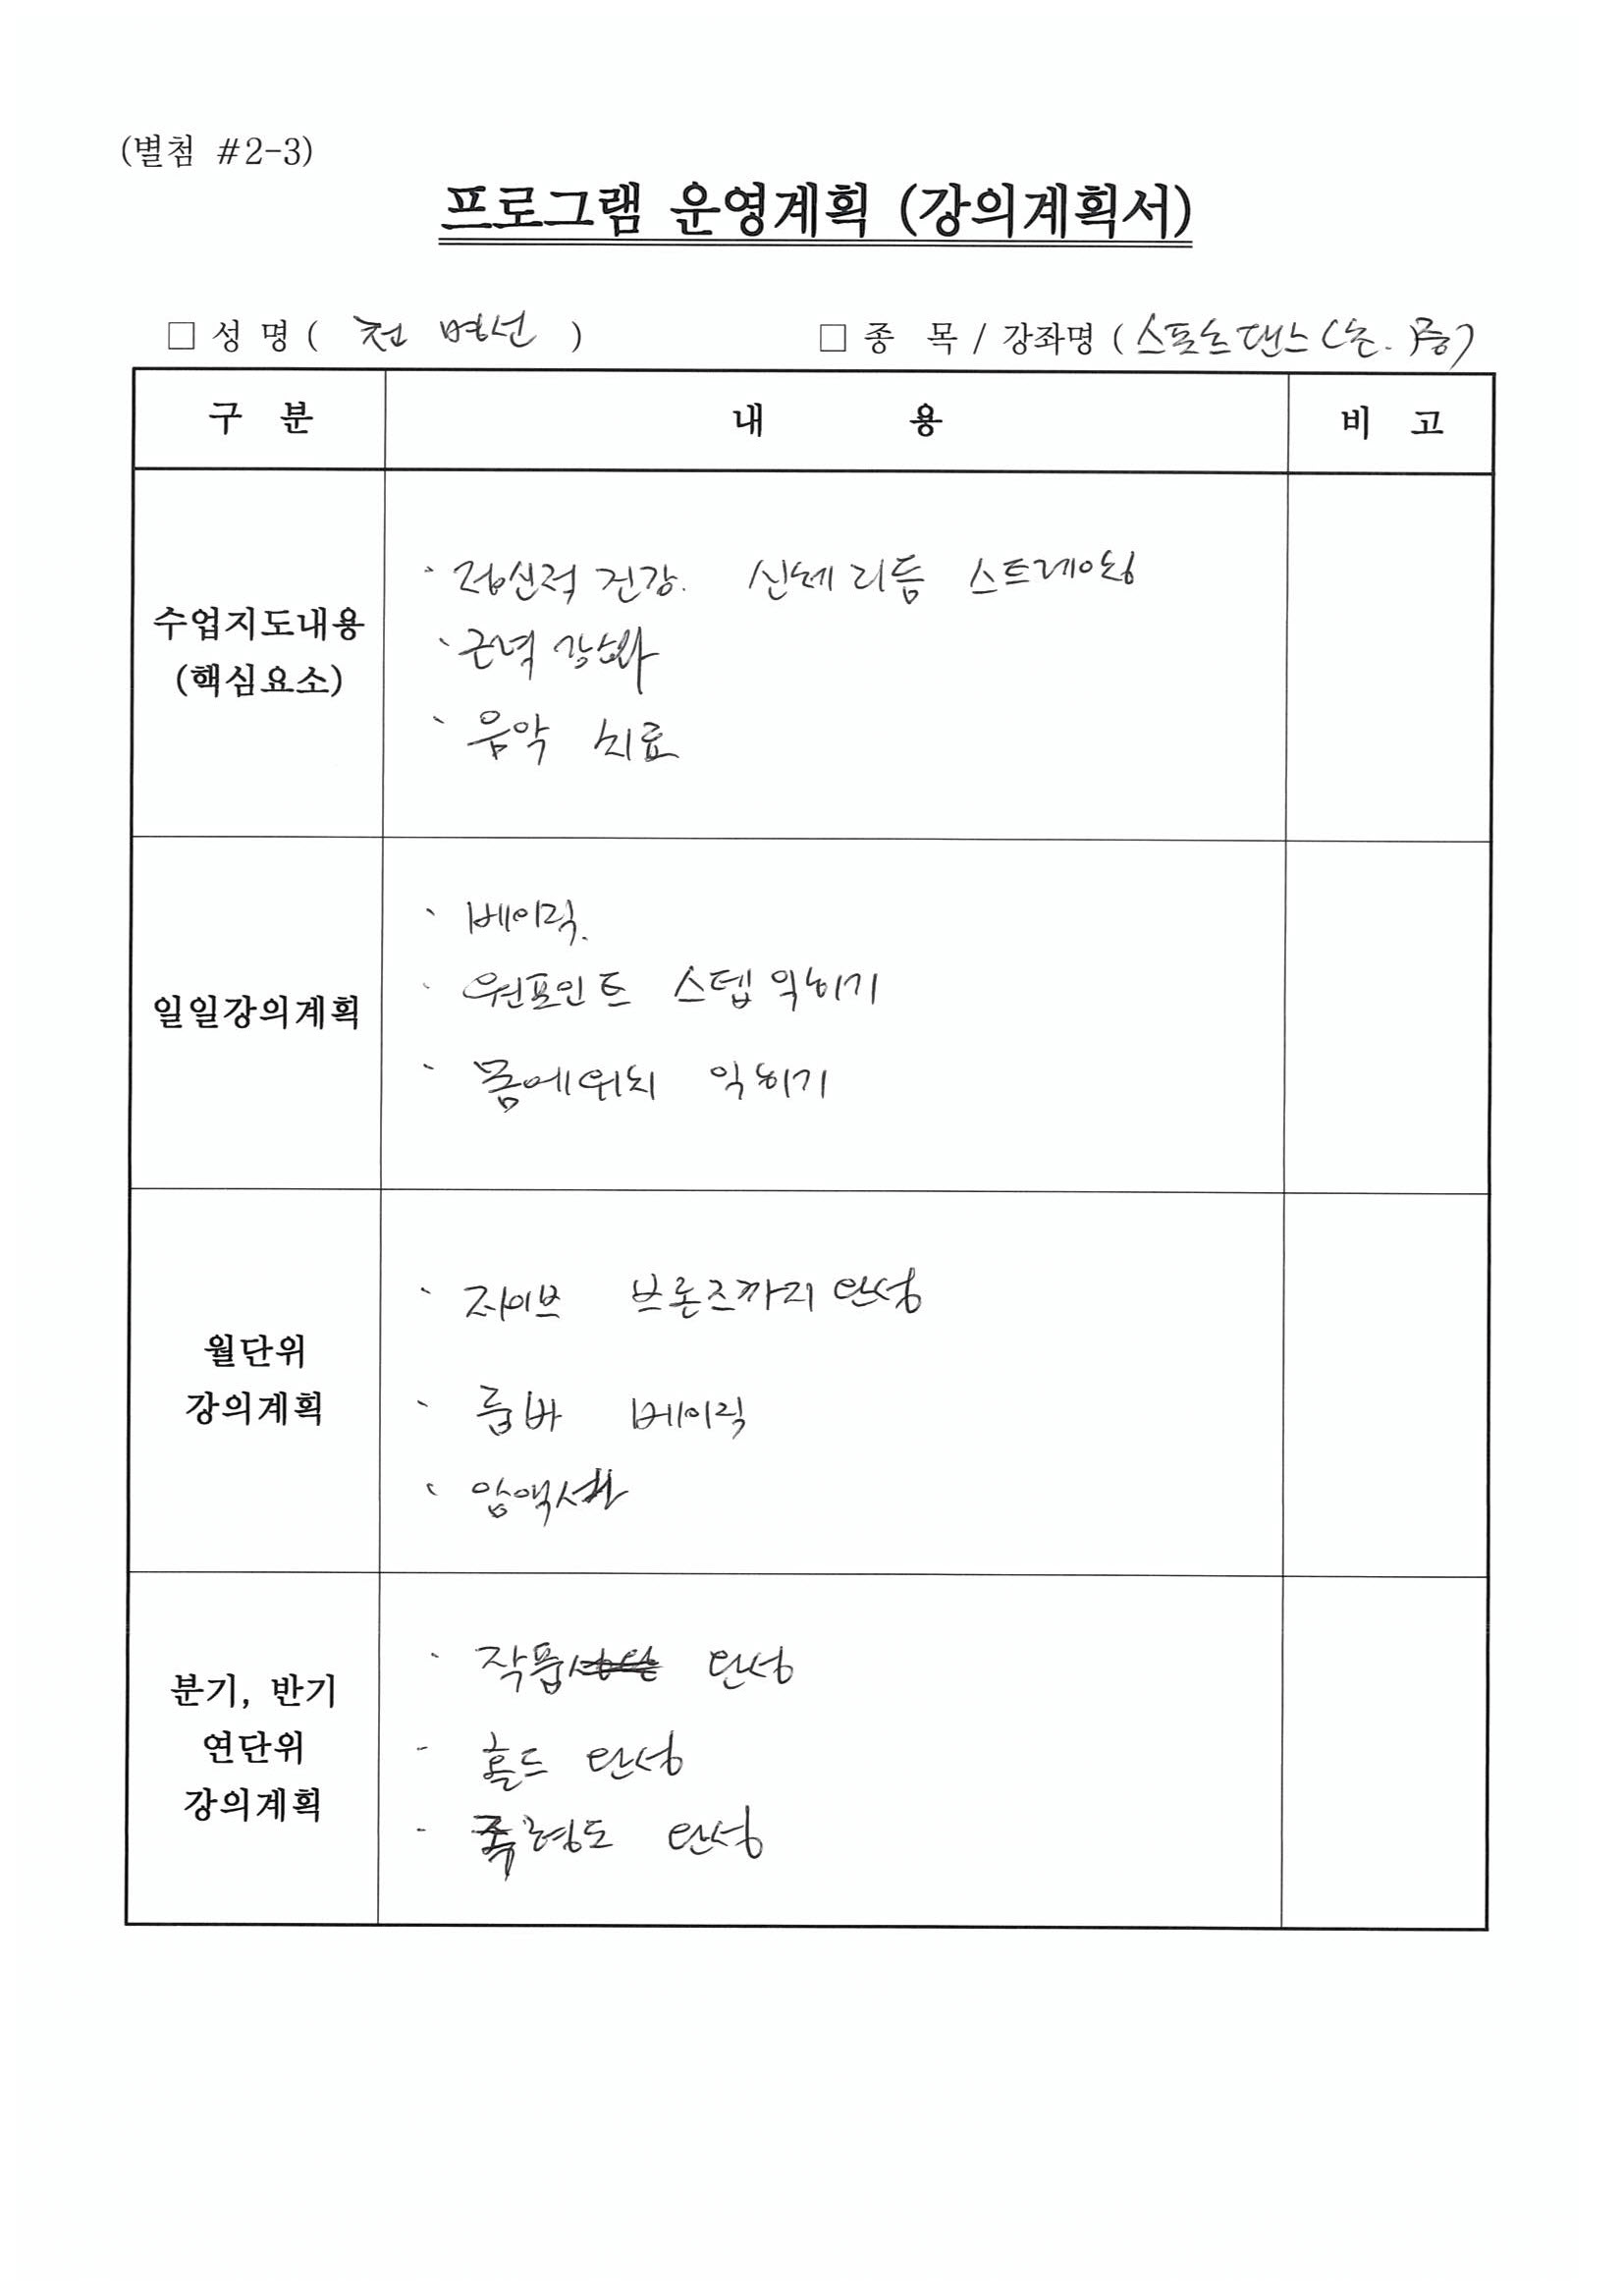 (별첨 #2-3)
프로그램 운영계획 (강의계획서)
□ 성 명 ( 천 명선 ) □ 종 목 / 강좌명 ( 스포츠댄스 (초. 중)
구 분 내 용 비 고
수업지도내용
(핵심요소)
· 정신적 건강. 신체리듬 스트레이칭
· 근력 강화
· 음악 치료
일일강의계획
· 베이직.
· 원포인트 스텝 익히기
· 몸에위치 익히기
월단위
강의계획
· 자이브 브론즈까지 완성
· 룸바 베이직
· 암액션
분기, 반기
연단위
강의계획
· 작품 완성
- 홀드 완성
- 완성